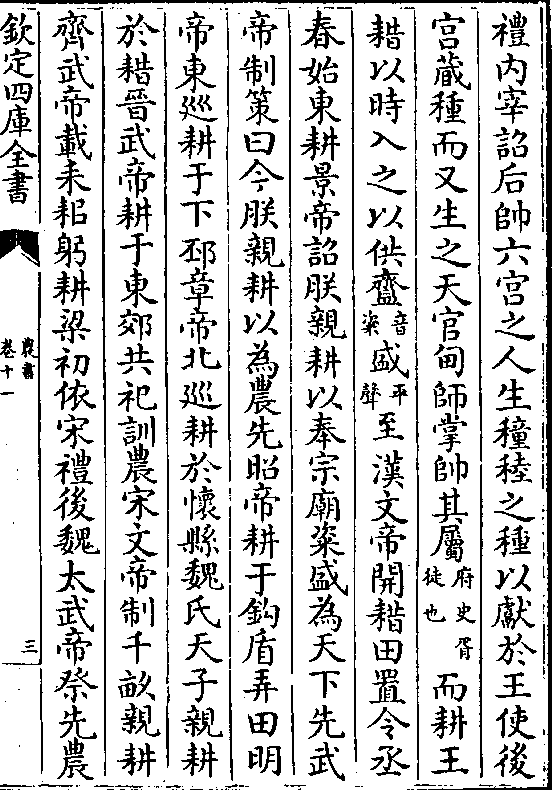 禮内宰詔后帥六宫之人生穜稑之種以獻於王使後
宫蔵種而又生之天官甸師掌帥其屬府史胥徒也而耕王
耤以時入之以供齍音粢盛平聲至漢文帝開耤田置令丞
春始東耕景帝詔朕親耕以奉宗廟粢盛為天下先武
帝制策曰今朕親耕以為農先昭帝耕于鈎盾弄田明
帝東巡耕于下邳章帝北巡耕於懷縣魏氏天子親耕
於耤晉武帝耕于東郊共祀訓農宋文帝制千畝親耕
齊武帝載耒耜躬耕梁初依宋禮後魏太武帝祭先農
欽定四庫全書
農書
卷十一
三